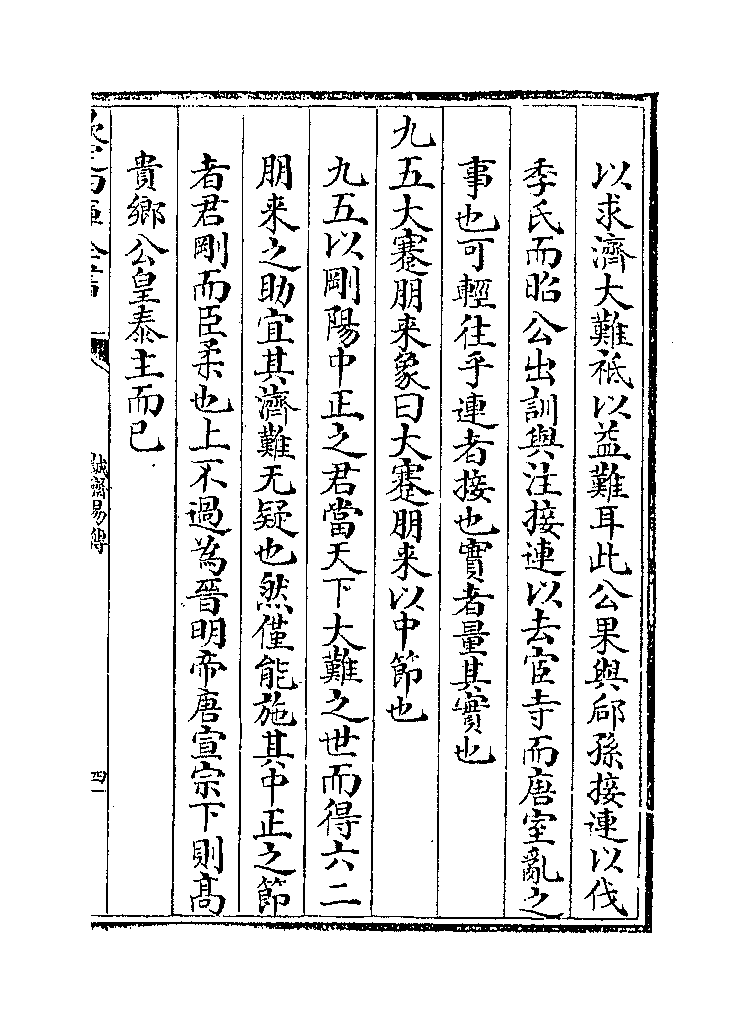 以求濟大難祗以益難耳此公果與郈孫接連以伐
季氏而昭公出訓與注接連以去宦寺而唐室亂之
事也可輕往乎連者接也實者量其實也
九五大蹇朋来象曰大蹇朋来以中節也
九五以剛陽中正之君當天下大難之世而得六二
朋来之助宜其濟難无疑也然僅能施其中正之節
者君剛而臣柔也上不過為晉明帝唐宣宗下則髙
貴鄉公皇泰主而已
誠齋易傳
四一